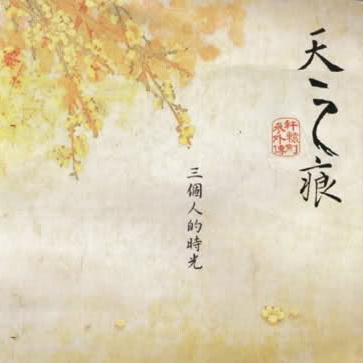 天之痕
軒轅劍
叄外傳
三個人的時光